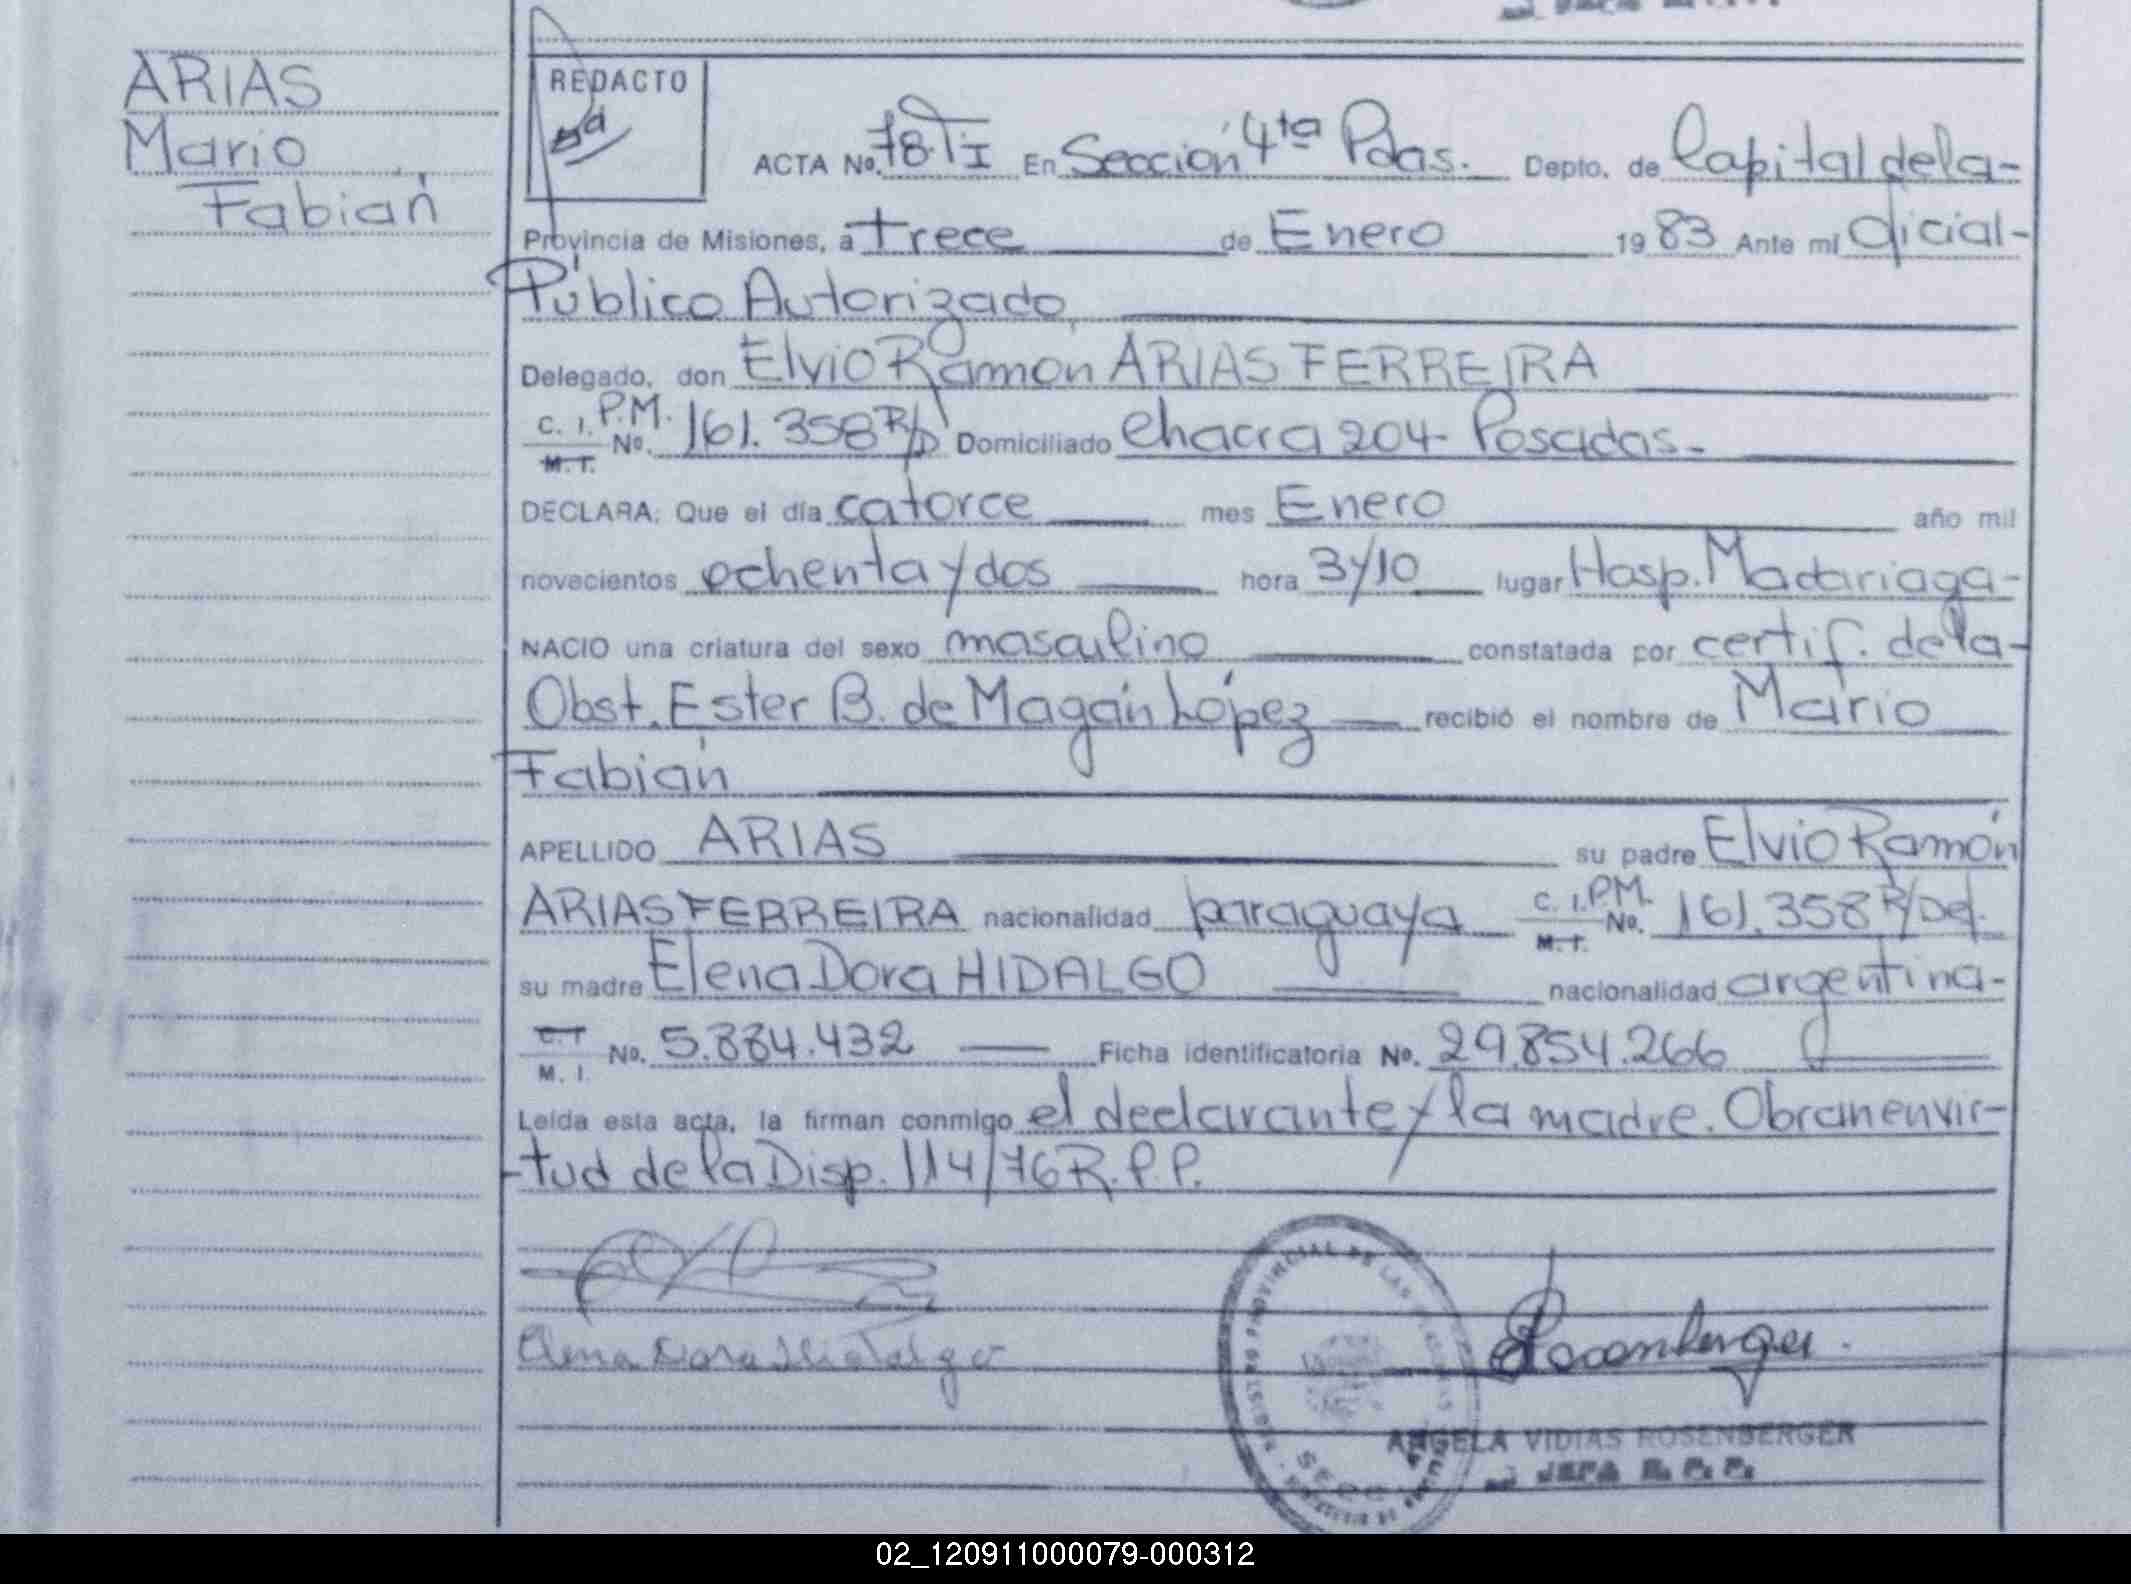 ARIAS
Mario
Fabián
REDACTO
ACTA No. 78. TI En Sección 4ta Pdas. Depto. de Capital de la-
Provincia de Misiones, a trece de Enero 1983 Ante mi Oficial-
Público Autorizado,
Delegado, don Elvio Ramón ARIAS FERREIRA
C. I. P.M. No. 161.358 R/D Domiciliado chacra 204- Posadas-
M. I.
DECLARA: Que el día catorce mes Enero año mil
novecientos ochenta y dos hora 3y10 lugar Hosp. Madariaga-
NACIO una criatura del sexo masculino constatada por certif. de la-
Obst. Ester B. de Magán López recibió el nombre de Mario
Fabián
APELLIDO ARIAS su padre Elvio Ramón
ARIAS FERREIRA nacionalidad paraguaya C. I. P.M. No. 161.358 R/Def.
M. I.
su madre Elena Dora HIDALGO nacionalidad argentina-
C. I
M. I. No. 5.884.432 Ficha identificatoria No. 29.854.266
Leída esta acta, la firman conmigo el declarante y la madre. Obran en vir-
-tud de la Disp. 114/76 R.P.P.
Elena Dora Hidalgo
Rosenberger.
REGISTRO PROVINCIAL DE LAS PERSONAS
ANGELA VIDIAS ROSENBERGER
JEFA R. P. P.
02_120911000079-000312